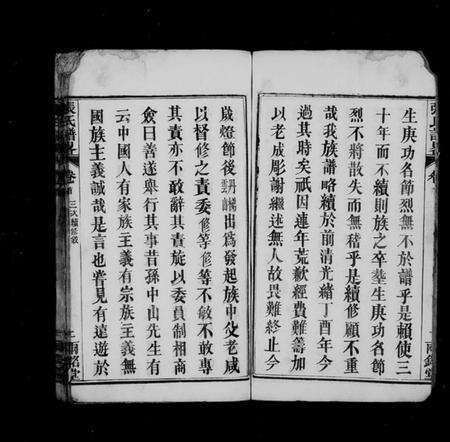 生庚功名節烈無不於譜乎是賴使三
十年而不續則族之卒塟生庚功名節
烈不將散失而無稽乎是續修顧不重
哉我族譜略續於前清光緒丁酉年今
過其時矣祇因連年荒歉經費難籌加
以老成彫謝繼述無人故畏難終止今
歲燈節後 出為發起族中父老咸
以督修之責委修等修等不敏不敢專
其責亦不敢辭其責旋以委員制相商
僉曰善遂舉行其事昔孫中山先生有
云中國人有家族主義有宗族主義無
國族主義誠哉是言也嘗見有遠遊於
張氏譜畧 卷首 三次續修敘 二 兩銘堂